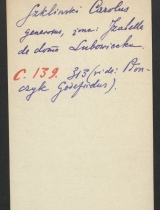 Szklinski Carolus
generosus, żona: Izabella
de domo Lubowiecka
C. 139. 313 (vide: Bon-
czyk Gozefidus).